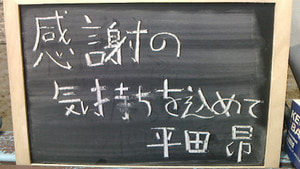 感謝の
気持ちを込めて
平田 昴